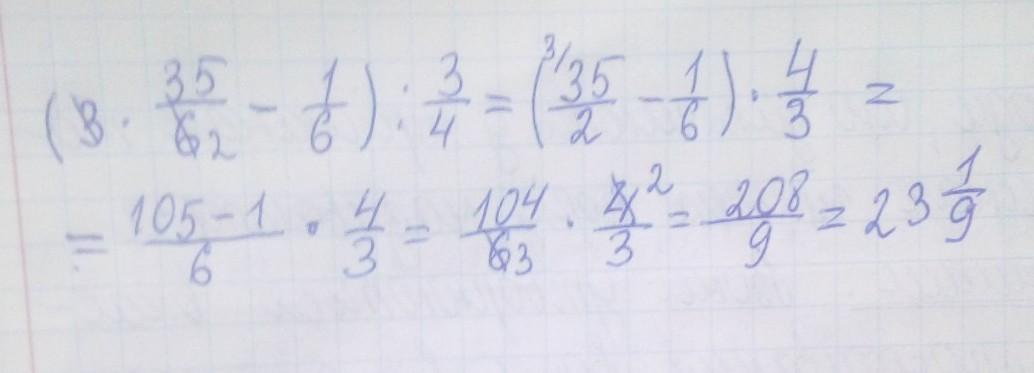 (3 · 35/6 2 - 1/6) : 3/4 = (3/ 35/2 - 1/6) · 4/3 =
= 105-1/6 · 4/3 = 104/6 3 · 4 2/3 = 208/9 = 23 1/9